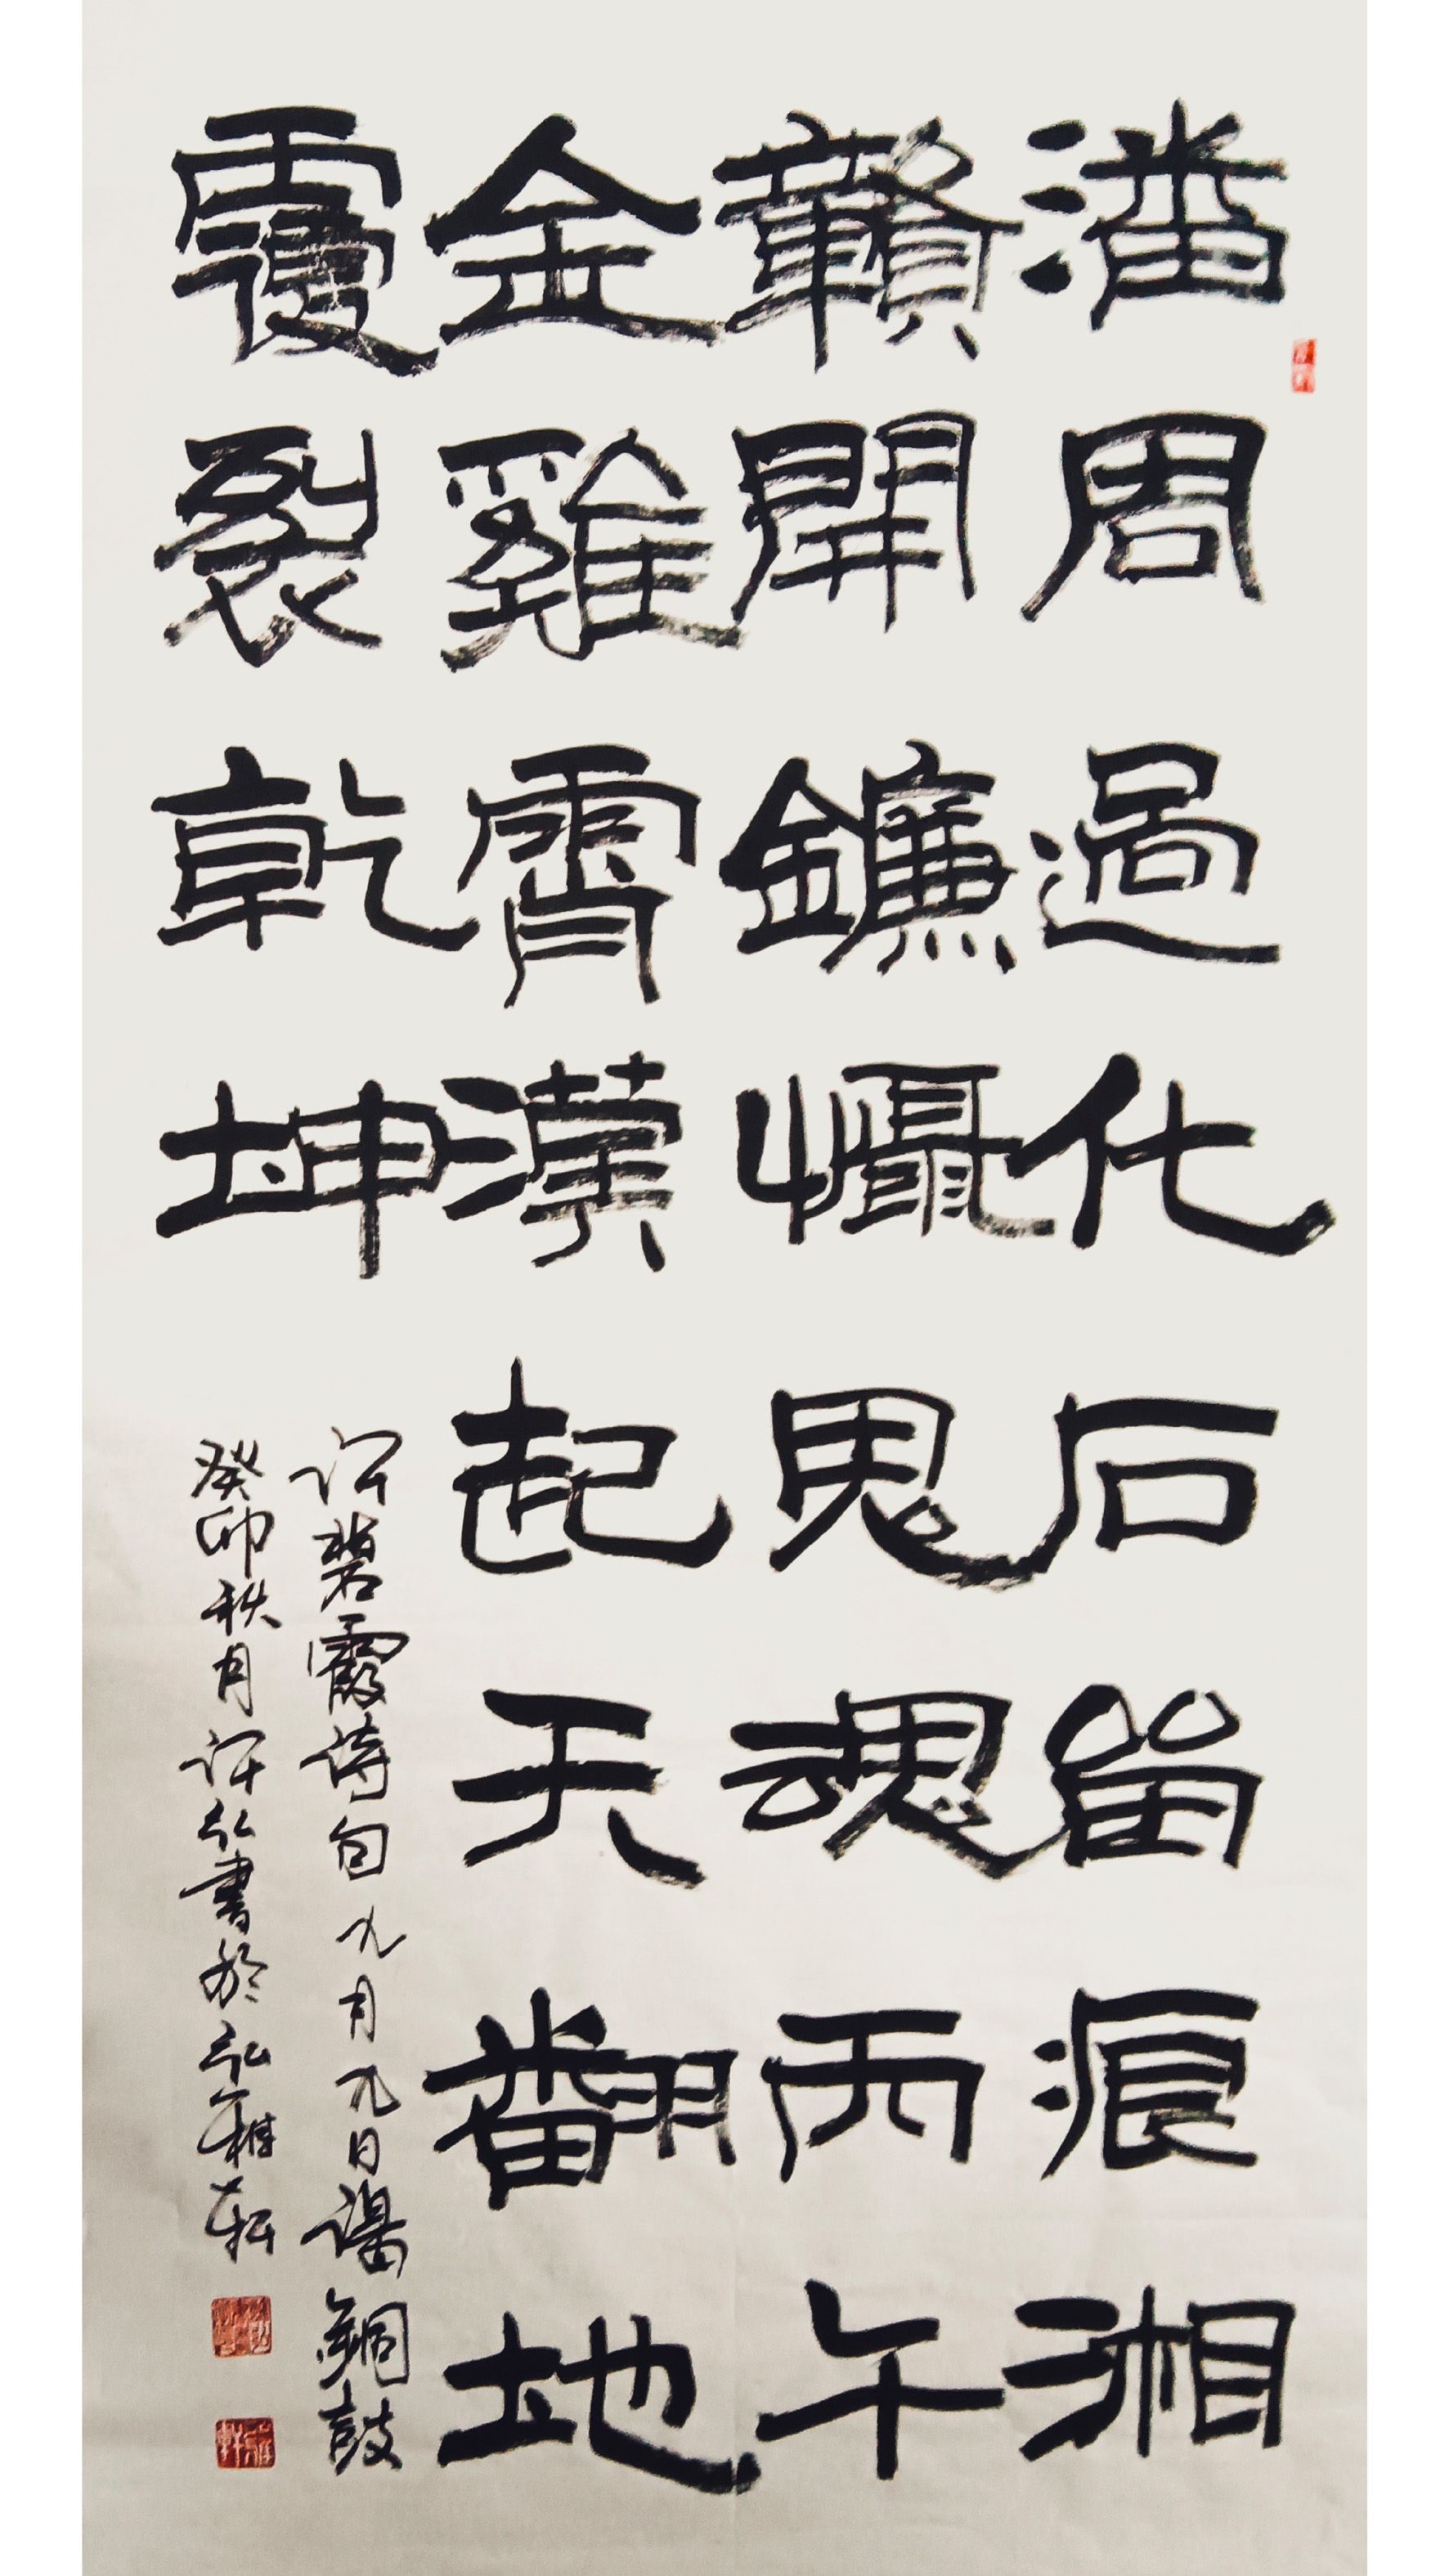 潘周過化石留痕湘
贛開鑣懾鬼魂丙午
金雞霄漢起天翻地
覆裂乾坤
許碧霞詩句九月九日謁銅鼓
癸卯秋月許弘書於弘雅軒